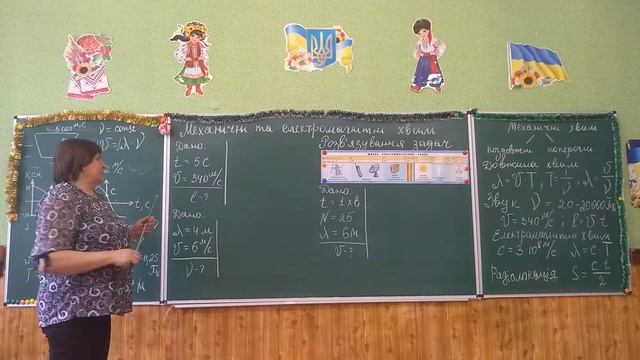 ν = const
υ = λ·ν
м/с
x, см
t, с
0,25
Гц
м
Механічні та електромагнітні хвилі
Розв'язування задач
Дано:
t = 5 с
υ = 340 м/с
l - ?
Дано:
λ = 4 м
υ = 6 м/с
ν - ?
Дано
t = 1 хв
N = 25
λ = 6 м
υ - ?
Механічні хвилі
поздовжні поперечні
Довжина хвилі
λ = υ T, T = 1/ν, λ = υ/ν
Звук ν = 20-20000 Гц
υ = 340 м/с; l = υ·t
Електромагнітні хвилі
c = 3·10⁸ м/с λ = c T
Радіолокація S = c·t/2